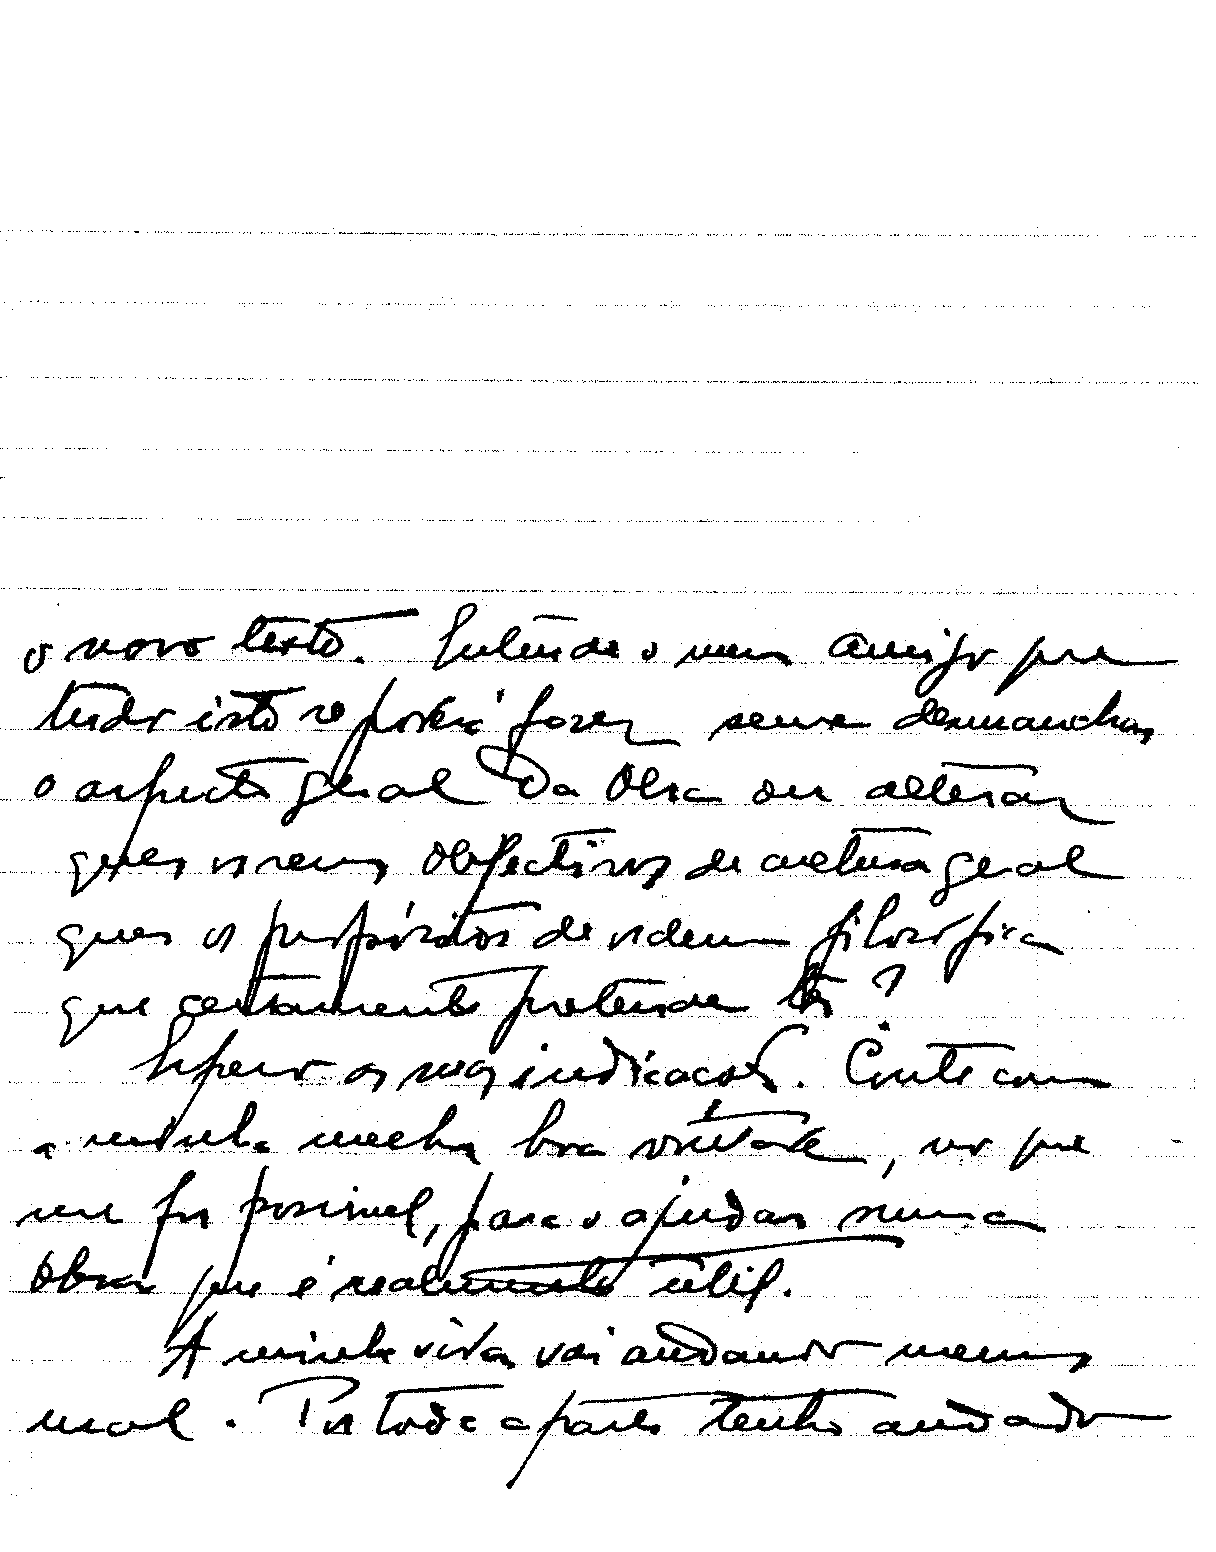 o novo texto. Entende o meu amigo que
tudo isto se poderá fazer sem desmanchar
o aspecto geral da Obra ou alterar
quer os seus objectivos de cultura geral
quer os propósitos de ordem filosófica
que certamente pretende ter?
Espero as suas indicações. Conte com
a minha melhor boa vontade, no que
me for possível, para o ajudar numa
obra que é realmente útil.
A minha vida vai andando menos
mal. Por toda a parte tenho andado